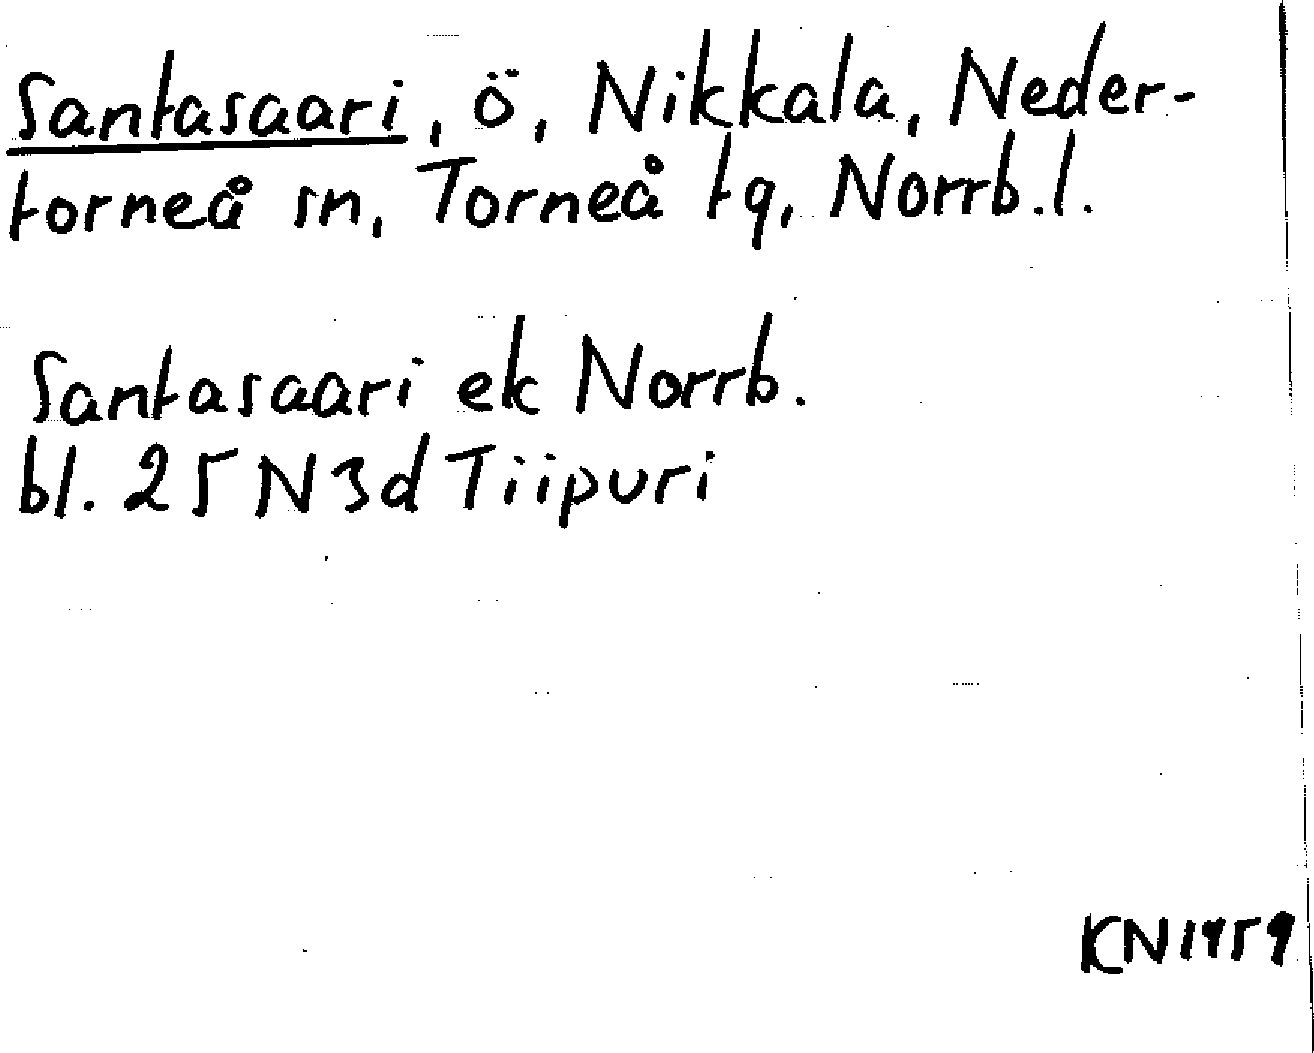 Santasaari, ö, Nikkala, Neder-
torneå sn, Torneå tg, Norrb.l.
Santasaari ek Norrb.
bl. 25 N 3d Tiipuri
KN 1959